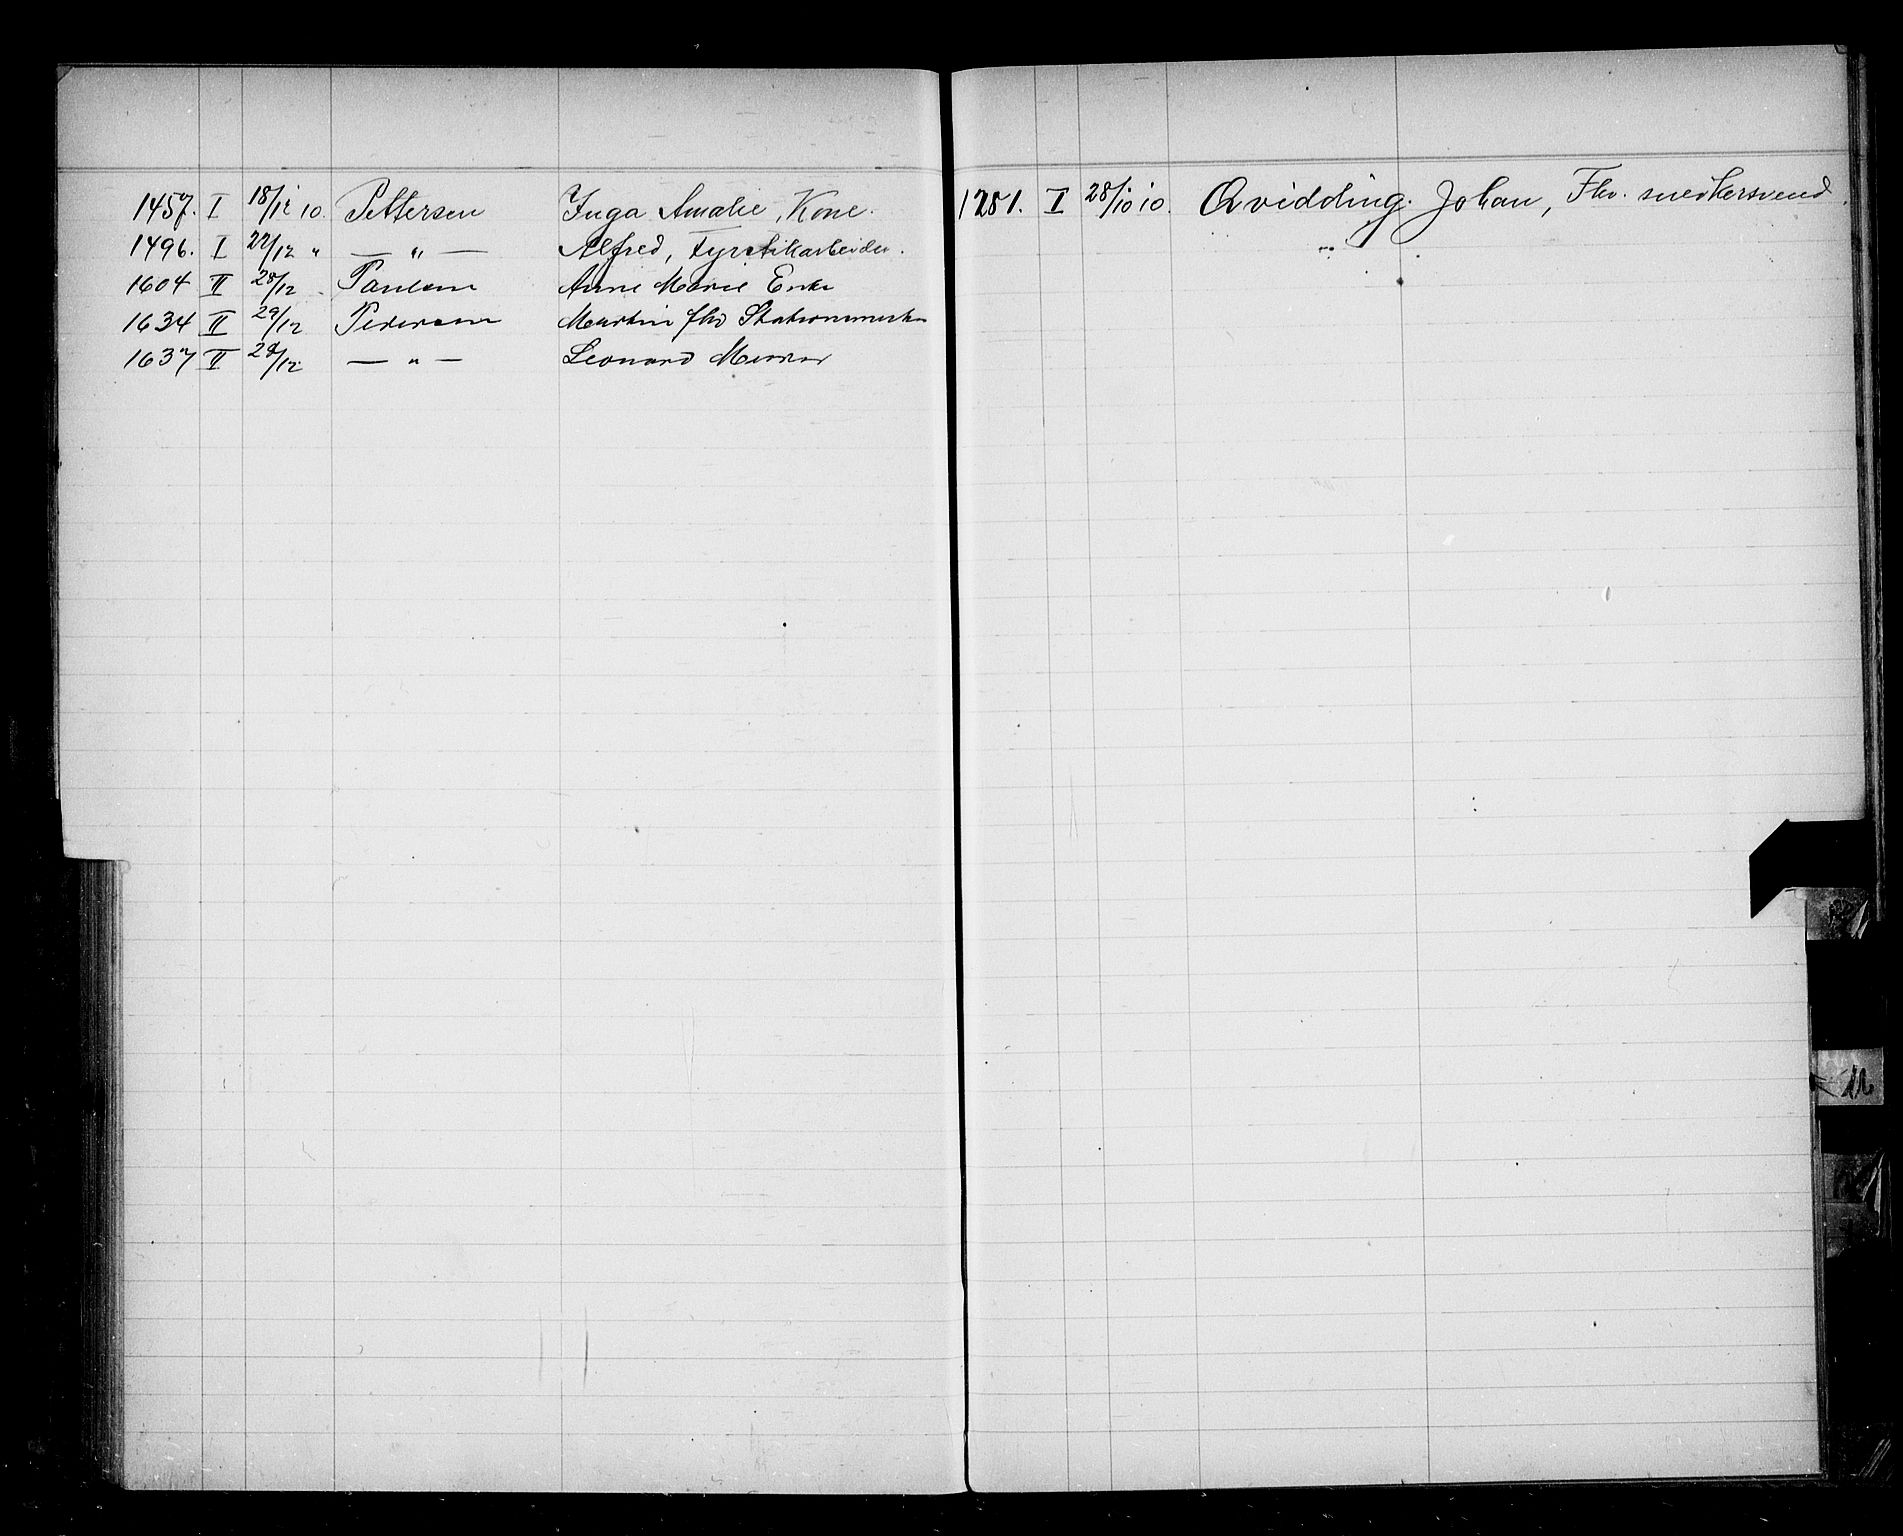 1457. I 18/12 10. Pettersen Inga Amalie, Kone.
1496. I 22/12 " — " — Alfred, Fyrstikarbeider.
1604 II 28/12 - Paulsen Anne Marie Enke
1634 II 29/12 Pedersen Martin fhv Stationsmester
1637 II 29/12 — " — Leonard Murer
1281. I 28/10 10. Qvidding. Johan, Fhv. snedkersvend.